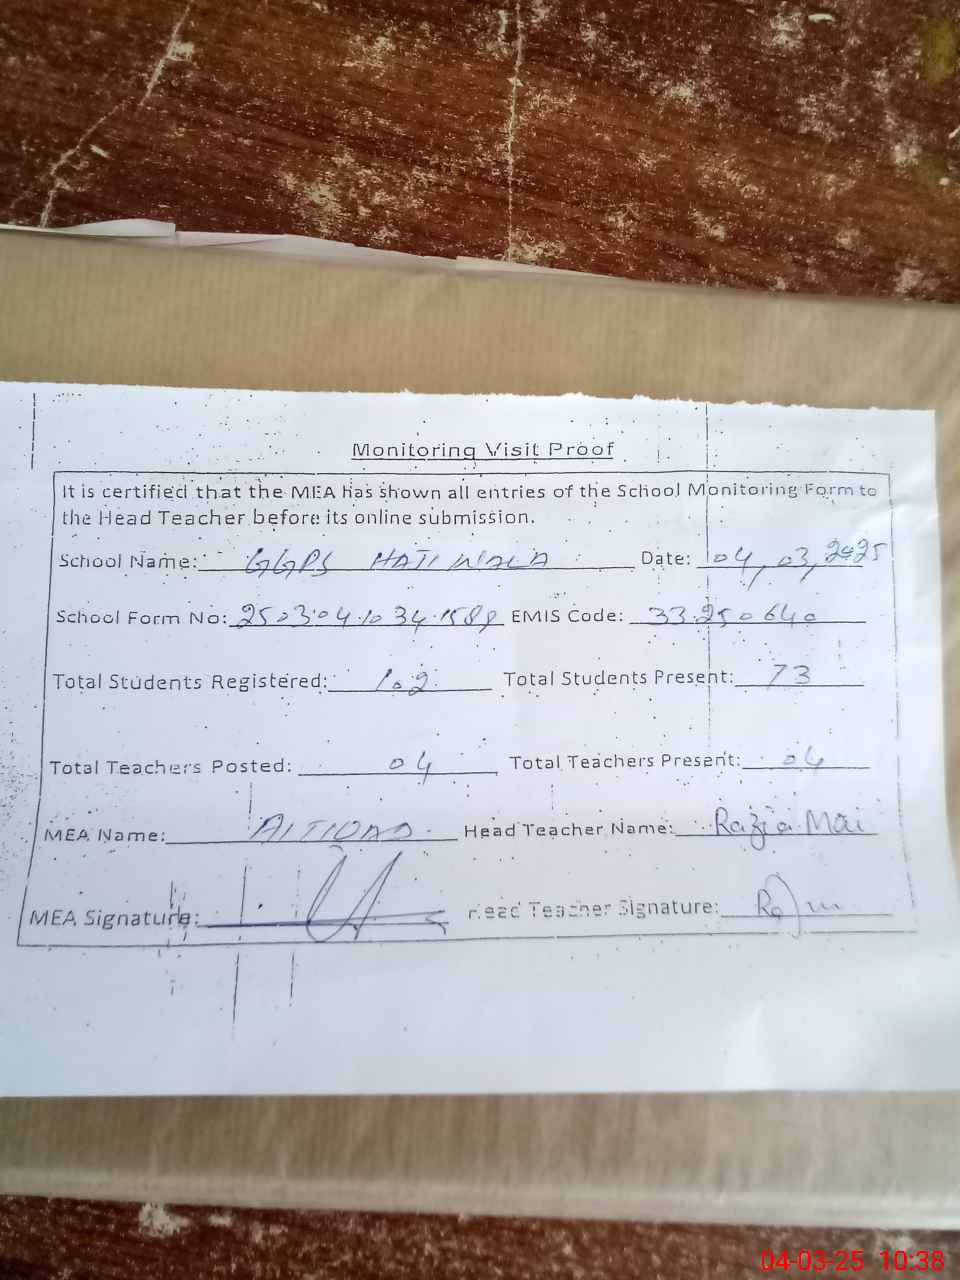 Monitoring Visit Proof
It is certified that the MEA has shown all entries of the School Monitoring Form to
the Head Teacher before its online submission.
School Name: GGPS HATI WALA Date: 04, 03, 2025
School Form No: 25030410341589 EMIS Code: 33250640
Total Students Registered: 102 Total Students Present: 73
Total Teachers Posted: 04 Total Teachers Present: 04
MEA Name: Head Teacher Name: Razia Mai
MEA Signature: Head Teacher Signature:
04-03-25 10:38